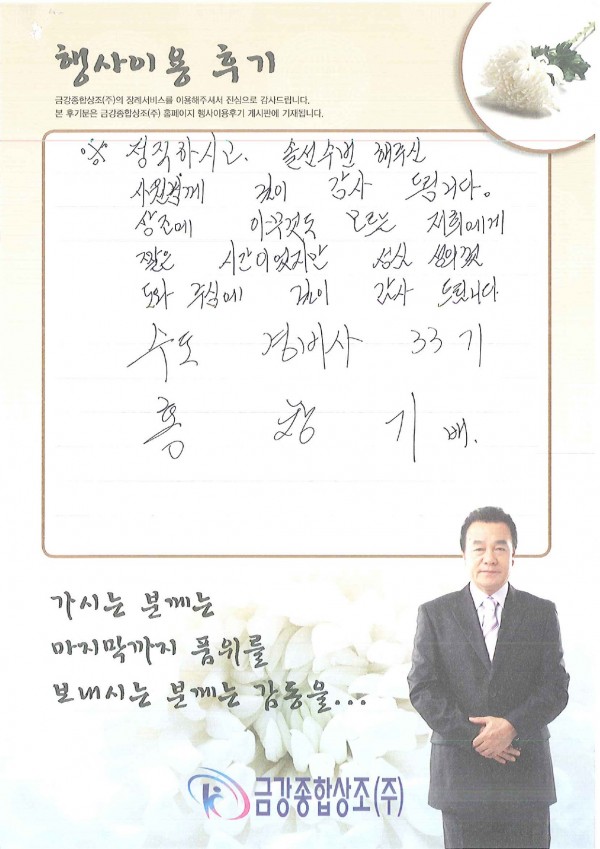 행사이용 후기
금강종합상조(주)의 장례서비스를 이용해주셔서 진심으로 감사드립니다.
본 후기문은 금강종합상조(주) 홈페이지 행사이용후기 게시판에 기재됩니다.
※ 정직하시고. 솔선수번 해주신
깊이 감사 드립니다.
상조에 아무것도 모르는 저희에게
짧은 시간이었지만 성심 성의것
도와 주심에 깊이 감사 드립니다
수도 경비사 33기
홍 창 기 배.
가시는 분께는
마지막까지 품위를
보내시는 분께는 감동을...
금강종합상조(주)